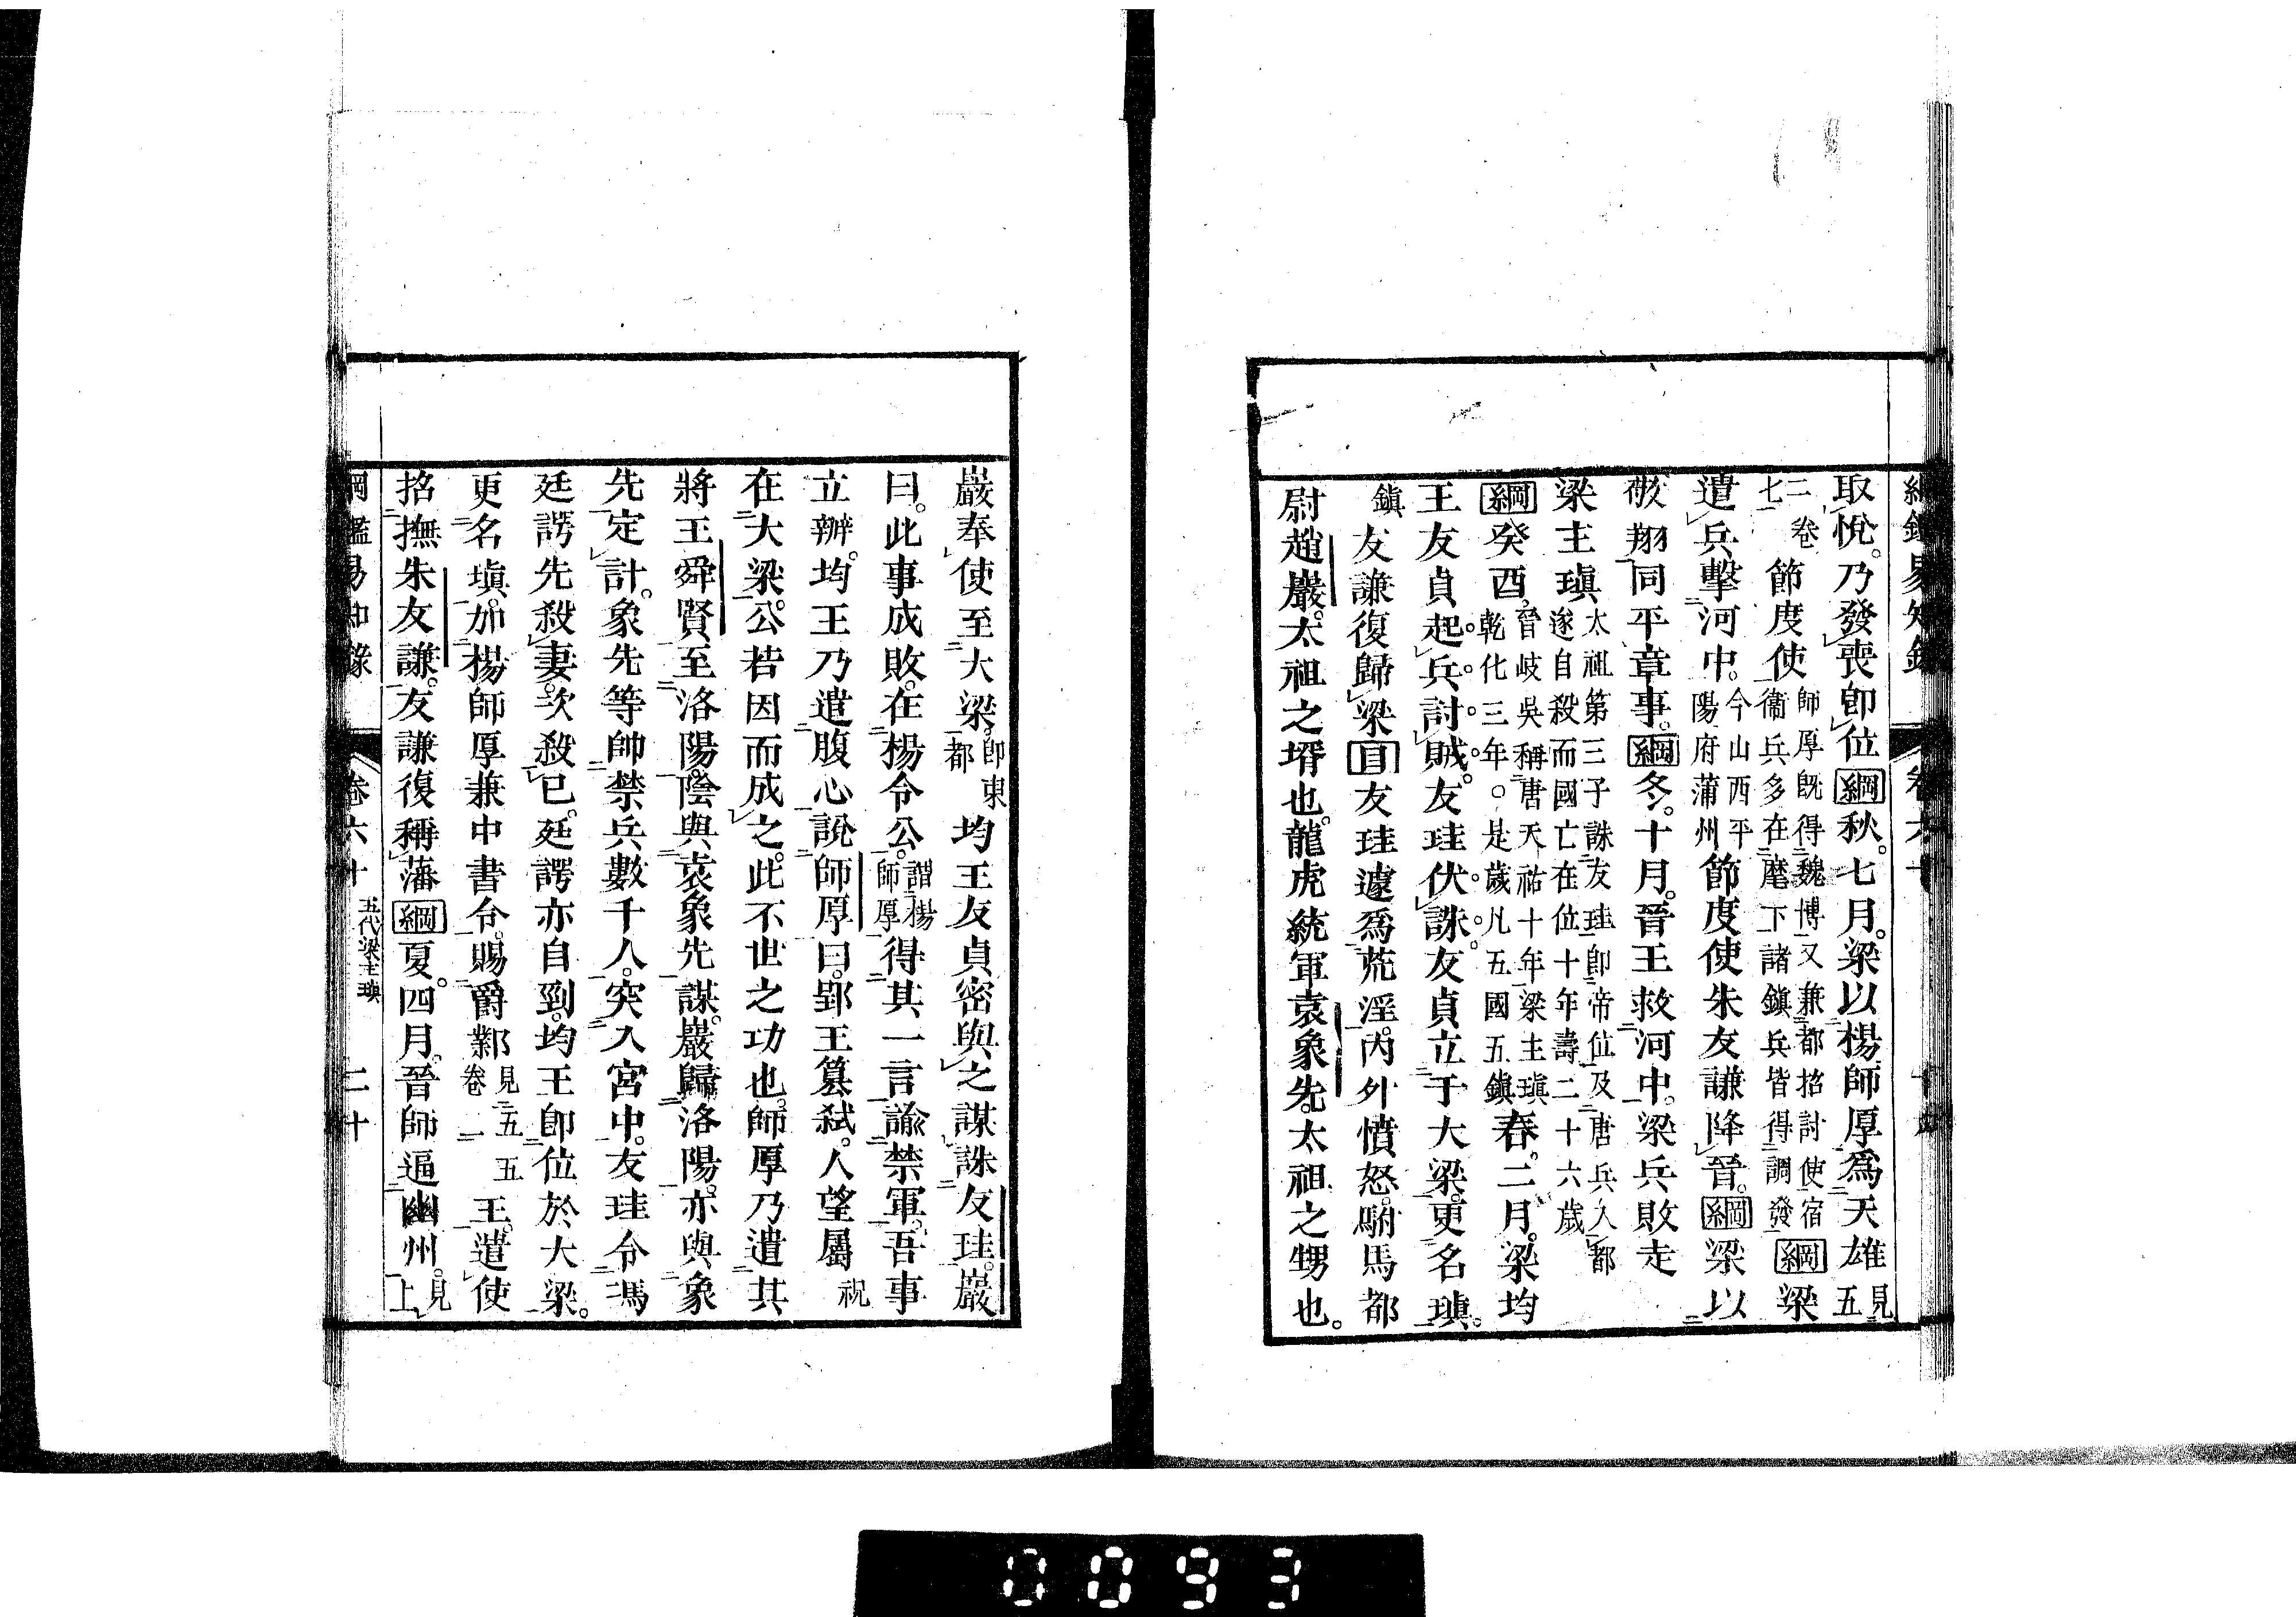 綱鑑易知錄 卷六十
取悅。乃發喪卽位 綱 秋。七月。梁以楊師厚爲天雄 見五
二卷七 節度使 師厚旣得魏博又兼都招討使宿衞兵多在麾下諸鎭兵皆得調發 綱 梁
遣兵擊河中。今山西平陽府蒲州 節度使朱友謙降晉。綱 梁以
敬翔同平章事。綱 冬。十月。晉王救河中。梁兵敗走
梁主瑱 太祖第三子誅友珪卽帝位及唐兵入都遂自殺而國亡在位十年壽二十六歲
綱 癸酉 晉岐吳稱唐天祐十年梁主瑱乾化三年。是歲凡五國五鎭 春。二月。梁均
王友貞起兵討賊。友珪伏誅。友貞立于大梁。更名瑱。
鎭 友謙復歸梁 目 友珪遽爲荒淫。內外憤怒。駙馬都
尉趙巖。太祖之壻也。龍虎統軍袁象先。太祖之甥也。
巖奉使至大梁。卽東都 均王友貞密與之謀誅友珪。巖
曰。此事成敗。在楊令公。謂楊師厚 得其一言諭禁軍。吾事
立辦。均王乃遣腹心說師厚曰。郢王簒弑。人望屬 祝
在大梁。公若因而成之。此不世之功也。師厚乃遣其
將王舜賢至洛陽。陰與袁象先謀。巖歸洛陽。亦與象
先定計。象先等帥禁兵數千人。突入宮中。友珪令馮
廷諤先殺妻。次殺己。廷諤亦自剄。均王卽位於大梁。
更名瑱。加楊師厚兼中書令。賜爵鄴 見五五卷二 王。遣使
招撫朱友謙。友謙復稱藩 綱 夏。四月。晉師逼幽州。見上
綱鑑易知錄 卷六十 五代梁主瑱 二十
0093